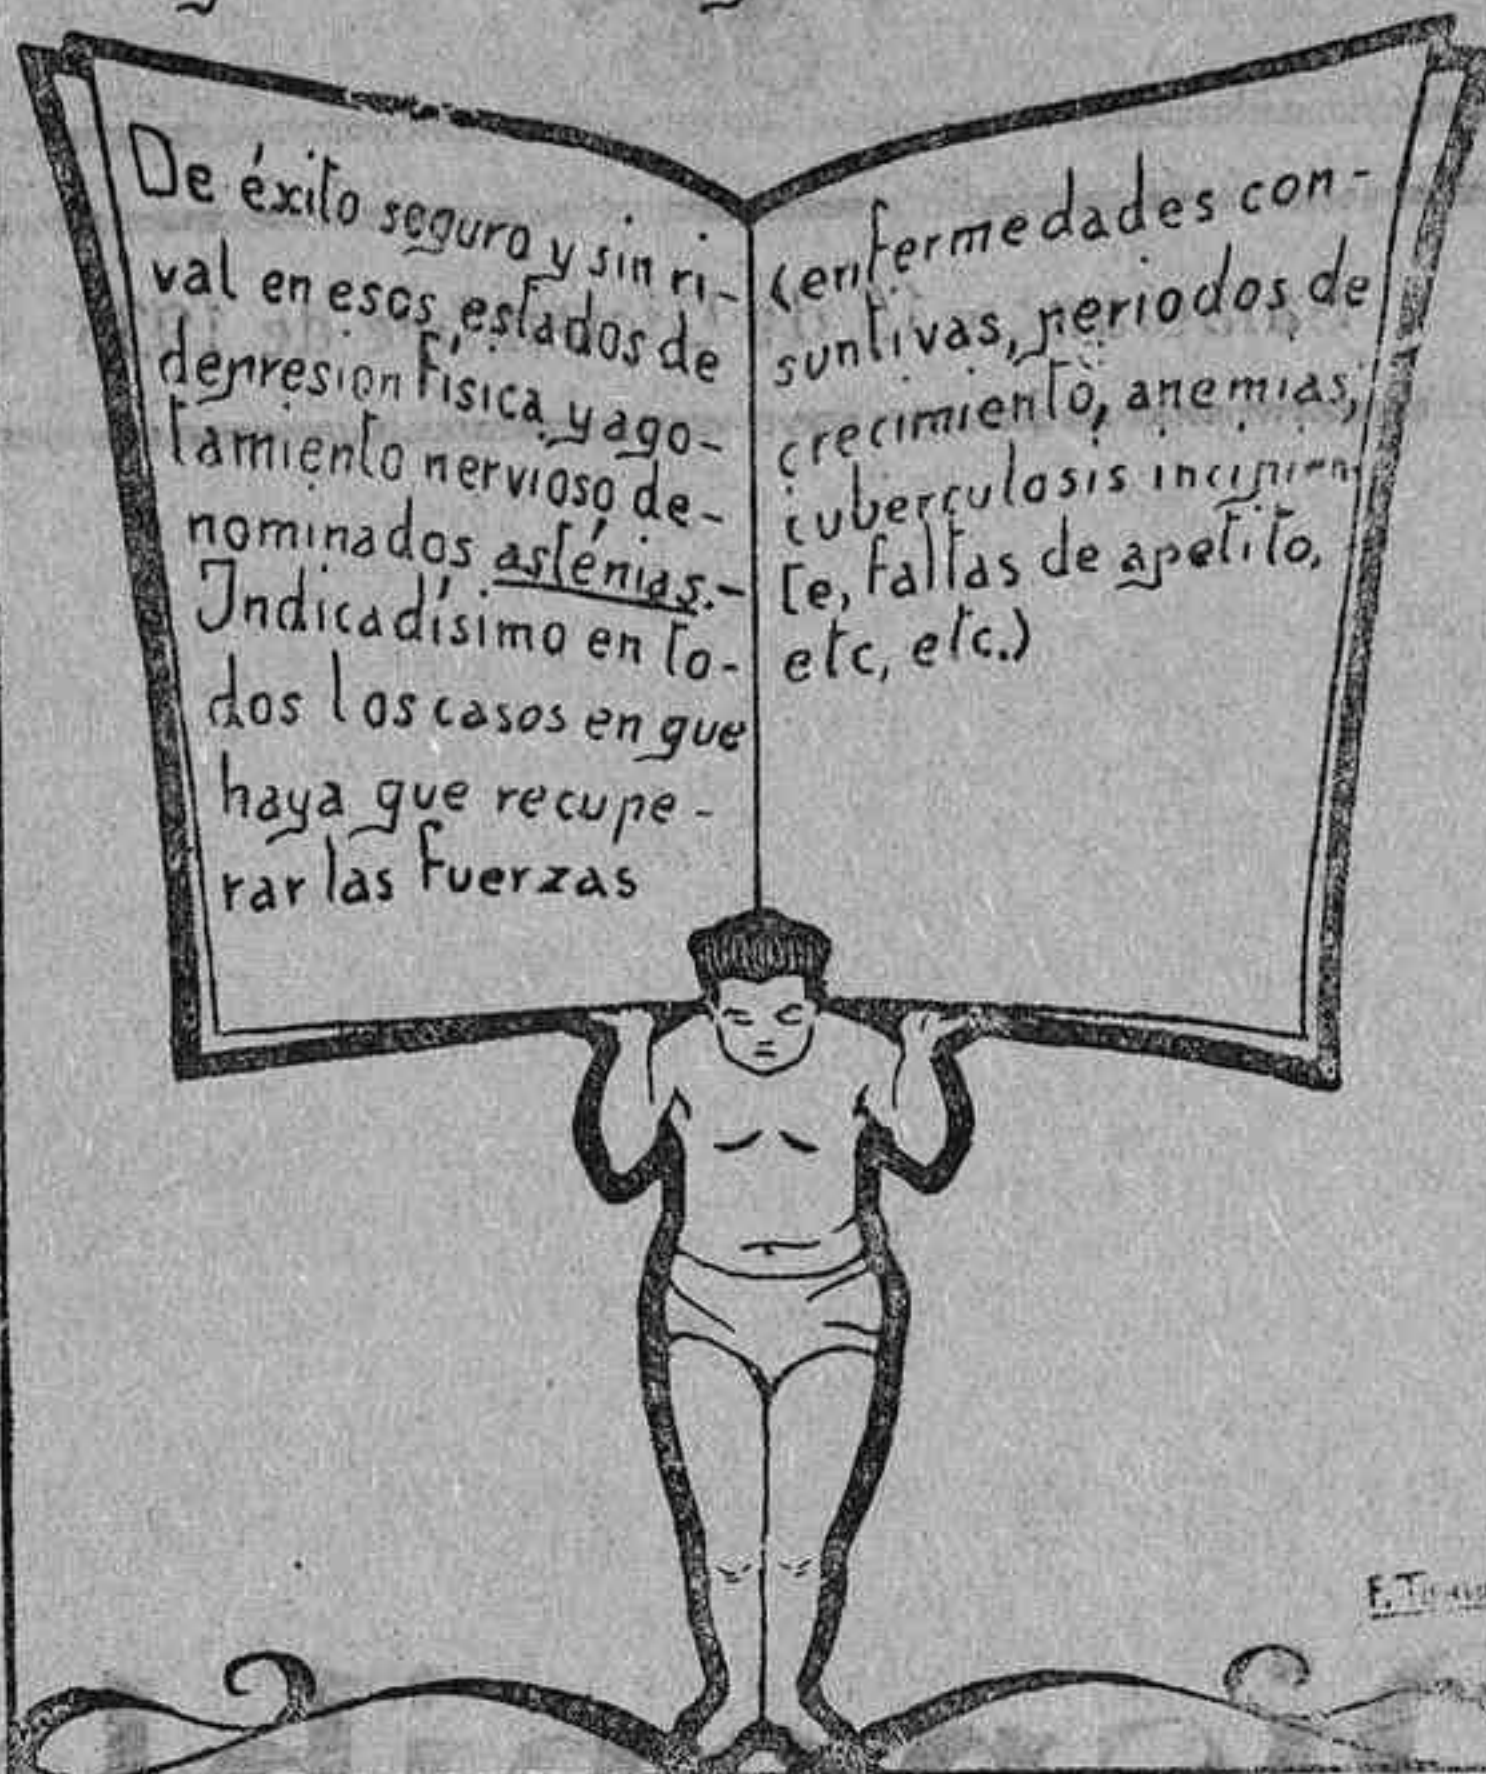 De éxito seguro y sin ri-
val en esos estados de
depresión física y ago-
tamiento nervioso de-
nominados asténias.-
Indicadísimo en to-
dos los casos en que
haya que recupe-
rar las fuerzas
(enfermedades con-
suntivas, periodos de
crecimiento, anemias,
tuberculosis incipien-
te, faltas de apetito,
etc, etc.)
F.